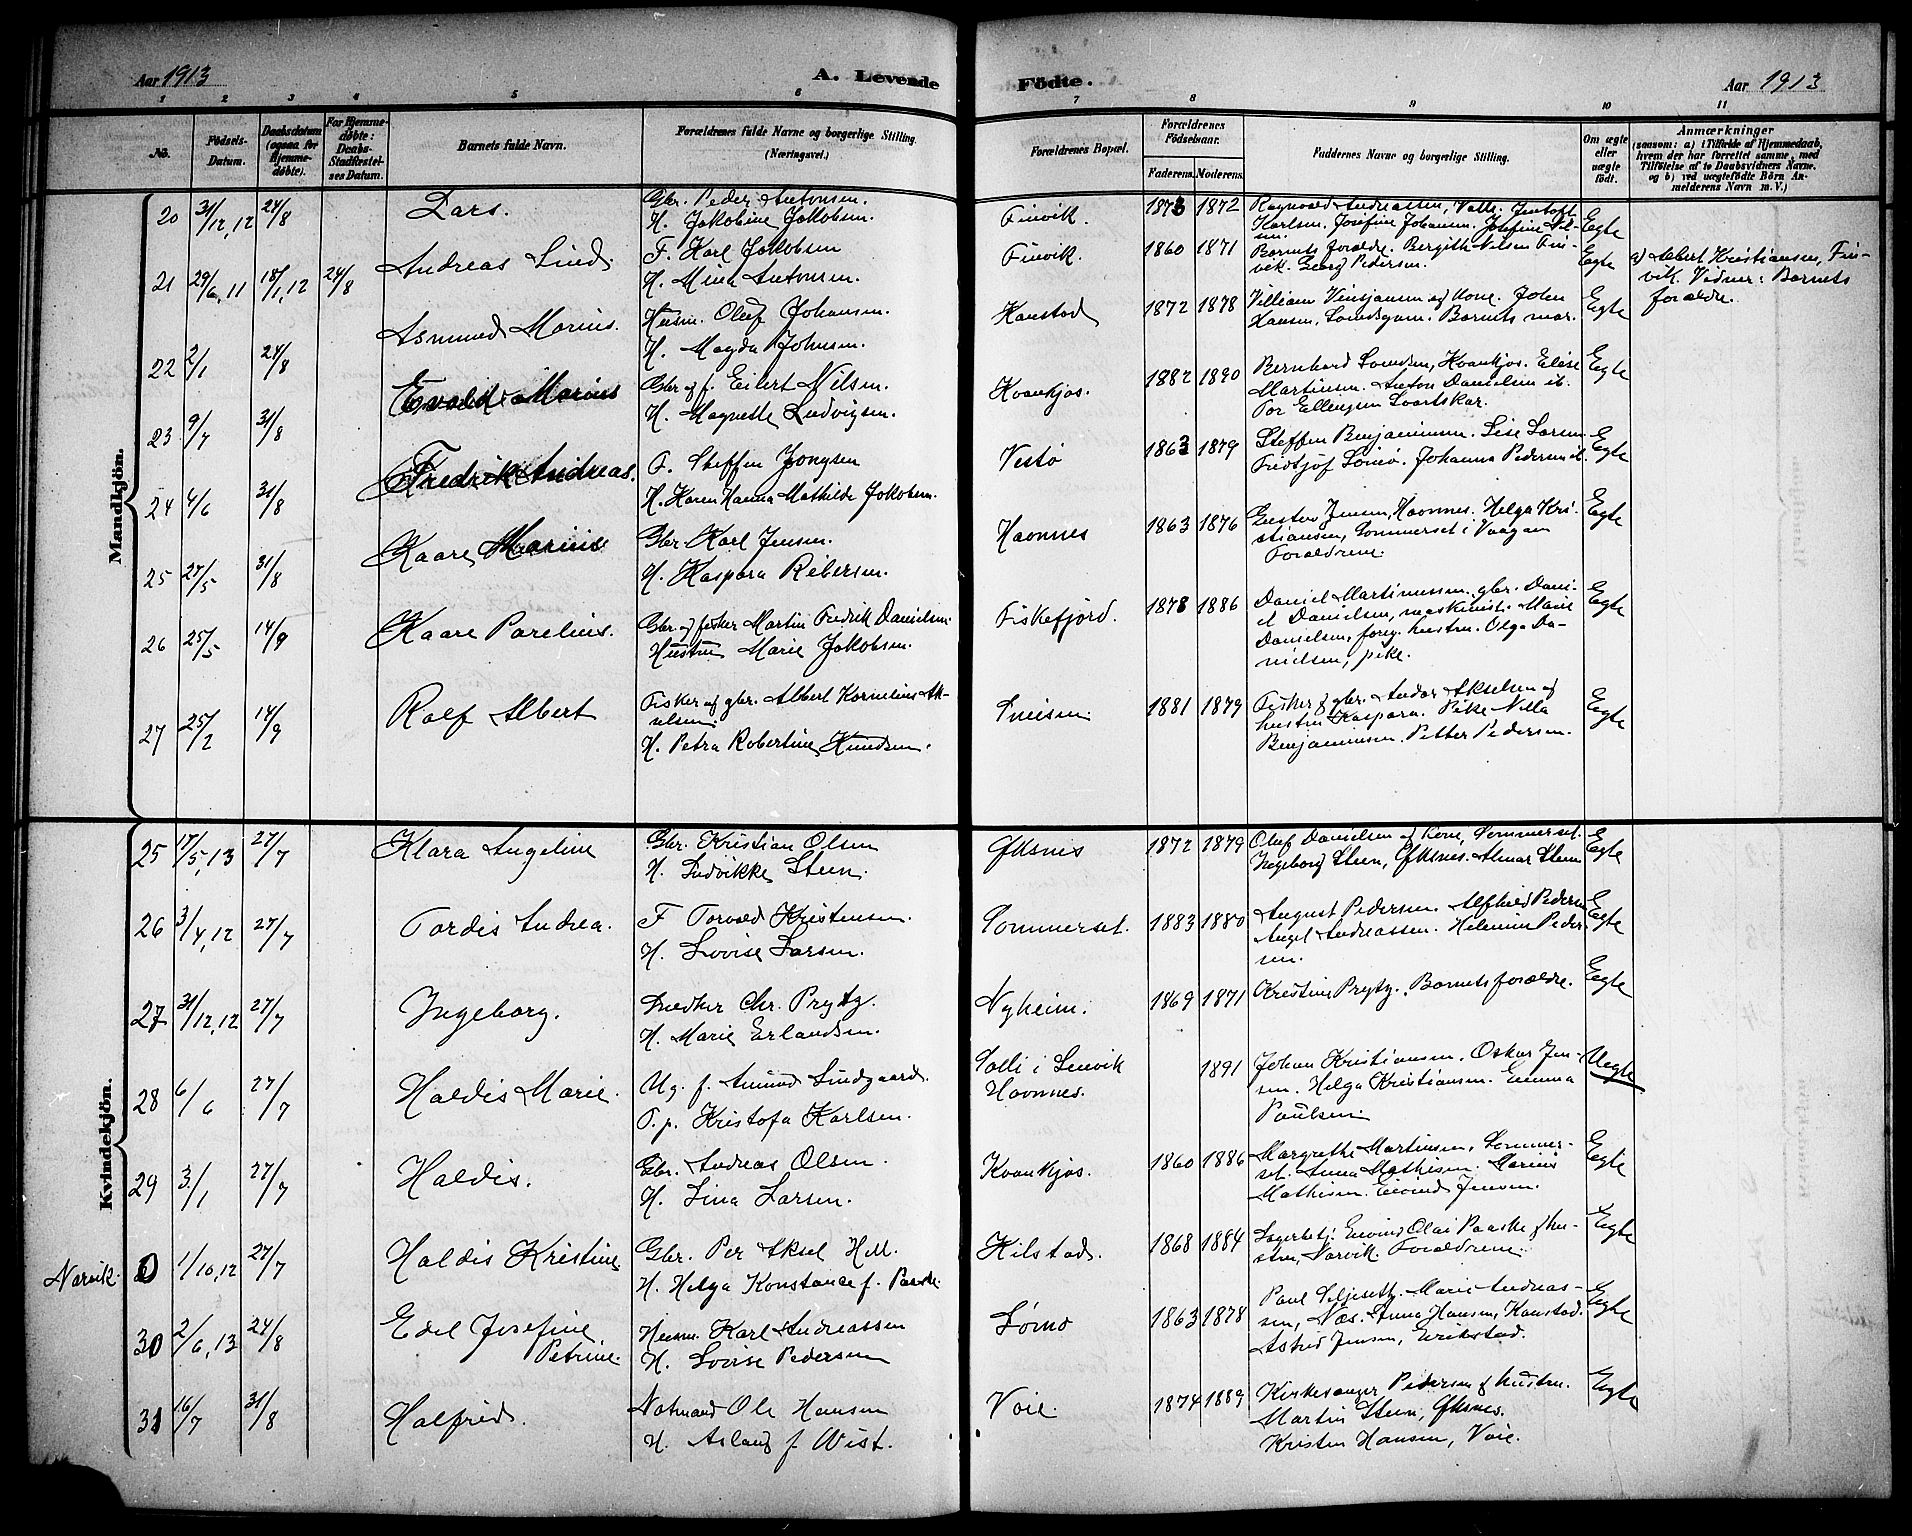 Aar 1913
A. Levende
Födte.
Aar 1913
1 2 3 4 5 6 7 8 9 10 11
No.
Födsels-
Datum.
Daabsdatum
(ogsaa for
Hjemme-
döbte).
For Hjemme-
döbte:
Daabs-
Stadfæstel-
ses Datum.
Barnets fulde Navn.
Forældrenes fulde Navne og borgerlige Stilling.
(Næringsvei.)
Forældrenes Bopæl.
Forældrenes
Födselsaar.
Faderens. Moderens.
Faddernes Navne og borgerlige Stilling.
Om ægte
eller
uægte
födt.
Anmærkninger
(saasom: a) i Tilfælde af Hjemmedaab,
hvem der har forrettet samme, med
Tilföielse af to Daabsvidners Navne,
og b) ved uægtefödte Börn An-
melderens Navn m. V.)
Mandkjön.
20 31/12,12 24/8 Lars.
Gbr. Peder Antonsen.
H. Jakobine Jakobsen.
Finvik. 1873 1872
Ragnvald Andreassen, Valle. Jentoft
Karlsen. Josefine Johansen. Josefine Nil-
sen.
Egte
21 29/6,11 18/1,12 24/8 Andreas Lind.
F. Karl Jakobsen
H. Mina Antonsen.
Finvik. 1860 1871
Barnets forældre. Bergith Nilsen Fin-
vik. Georg Pedersen.
Egte
a) Albert Kristiansen, Fin-
vik. Vidner: Barnets
forældre.
22 2/1 24/8 Asmund Marius.
Husm. Oluf Johansen.
H. Magda Johnsen.
Kanstad 1872 1878
Villiam Vinsjansen og kone. John
Hansen, Barnets mor.
Egte
23 9/7 31/8 Evald Marius
Gbr. og f. Eilert Nilsen.
H. Magnette Ludvigsen.
Kvankjos. 1882 1890
Bernhard Kvankjos. Elise
Martinsen. Anton Danielsen ib.
Tor Ellingsen Svartskar.
Egte
24 4/6 31/8 Fredrik Andreas.
F. Steffen Jongsen
H. Karen Hanna Mathilde Jakobsen.
Vestö 1863 1879
Steffen Benjaminsen. Lise Larsen
Fridtjof Johanna Pedersen
Egte
25 27/5 31/8 Kaare Marius
Gbr. Karl Jensen.
H. Kaspara Ribersen.
Havnnes 1863 1876
Gustav Jensen, Havnnes. Helga Kri-
stiansen, Sommerset i Vaagan
Forældrene.
Egte
26 25/5 14/9 Kaare Parelius.
Gbr. og fisker Martin Fredrik Danielsen.
Hustru Marie Jakobsen.
Fiskefjord. 1878 1886
Daniel Martinussen. gbr. Dani-
el Danielsen, maskinist. Marie
Danielsen, foreg. hustru. Olga Da-
nielsen, pike.
Egte
27 25/2 14/9 Rolf Albert
Fisker og gbr. Albert Kornelius Ak-
selsen.
H. Petra Robertine Knudsen.
1881 1879
Fisker og gbr. Andor Akselsen og
hustru Kaspara. Pike Nilla
Benjaminsen. Petter Pedersen.
Egte
Kvindekjön.
25 17/5,13 27/7 Klara Angeline
Gbr. Kristian Olsen
H. Ludvikke Steen.
Øksnes 1872 1879
Oluf Danielsen og kone, Sommerset.
Ingeborg Steen, Øksnes. Almar Steen
Egte
26 3/4,12 27/7 Tordis Andrea.
F Torvald Kristensen.
H. Lovise Larsen.
Sommerset. 1883 1880
August Pedersen. Alfhild Pedersen
Angel Andreassen. Helmine Peder-
sen.
Egte
27 31/12,12 27/7 Ingeborg.
Snedker Chr. Prytz.
H. Marie Erlandsen.
Nyheim. 1869 1871
Kristine Prytz. Barnets forældre.
Egte
28 6/6 27/7 Haldis Marie.
Ug. f. Amund Lindgaard.
T. p. Kristofa Karlsen.
Valli i Lenvik
Havnnes.
1891
Johan Kristiansen. Oskar Jen-
sen. Helga Kristiansen. Emma
Paulsen.
Uegte
29 3/1 27/7 Haldis.
Gbr. Andreas Olsen.
H. Lina Larsen.
Kvankjos. 1860 1886
Margrethe Martinsen, Sommer-
set. Anna Mathisen. Marius
Mathisen. Eivind Jensen.
Egte
Narvik. 0 1/10,12 27/7 Haldis Kristine
Gbr. Per Aksel Holl.
H. Helga Konstance f. Paaske.
Hilstad. 1868 1884
Lagerbetj. Eivind Olai Paaske og hu-
stru, Narvik. Forældrene.
Egte
30 2/6,13 24/8 Edel Josefine
Petrine.
Husm. Karl Andreassen
H. Lovise Pedersen
Sørnø 1863 1878
Paul Seljeseth. Marie Andreas-
sen, Næs. Anna Hansen, Kanstad.
Astrid Jensen, Erikstad.
Egte
31 16/7 31/8 Halfrid.
Notmand Ole Hansen
H. Aslaug f. Wist.
Voie. 1874 1889
Kirkesanger Pedersen og hustru.
Martin Steen, Øksnes.
Kristen Hansen, Voie.
Egte